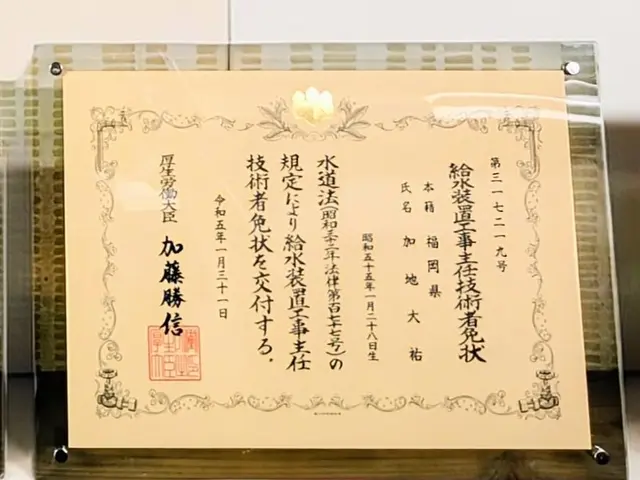 第三一七二一九号
給水装置工事主任技術者免状
本籍 福岡県
氏名 加地大祐
昭和五十五年一月二十八日生
水道法(昭和三十二年法律第百七十七号)の
規定により給水装置工事主任
技術者免状を交付する.
令和五年一月三十一日
厚生労働大臣 加藤勝信